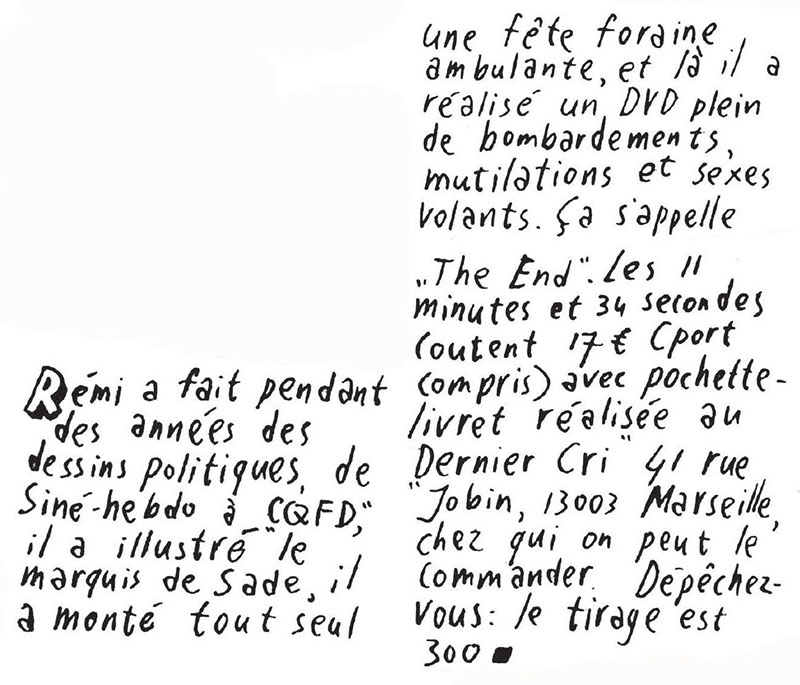 Rémi a fait pendant
des années des
dessins politiques, de
Siné-hebdo à CQFD,"
il a illustré "le
marquis de Sade, il
a monté tout seul
une fête foraine
ambulante, et là il a
réalisé un DVD plein
de bombardements,
mutilations et sexes
volants. Ça s'appelle
„The End". Les 11
minutes et 34 secondes
coutent 17 € (port
compris) avec pochette-
livret réalisée au
Dernier Cri" 41 rue
"Jobin, 13003 Marseille,
chez qui on peut le
commander. Dépêchez-
vous: le tirage est
300 ■